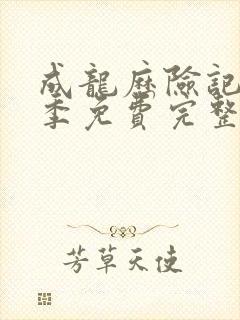 成龍歷險記
季免費完整
芳草天使